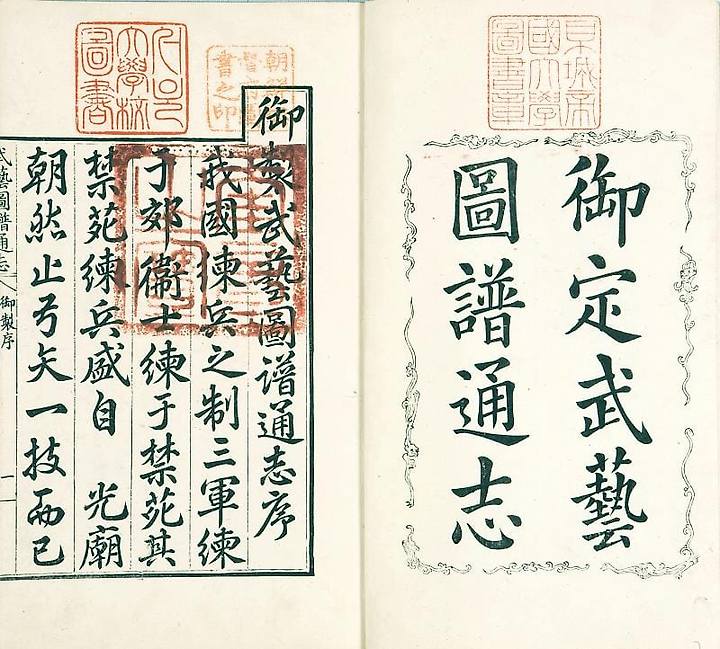 京城帝
國大學
圖書章
御定武藝
圖譜通志
朝鮮總
督府圖
書之印
大學校
圖書
御製武藝圖譜通志序
我國練兵之制三軍練
于郊衞士練于禁苑其
禁苑練兵盛自 光廟
朝然止弓矢一技而已
武藝圖譜通志 御製序 一